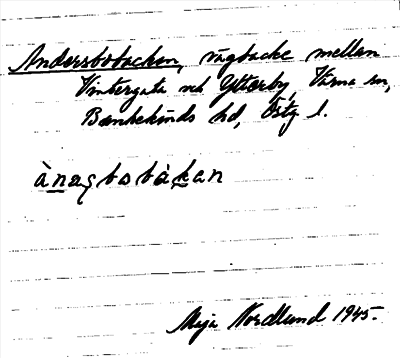 Andersbobacken, vägbacke mellan
Vintergata och Ytterby, Värna sn,
Bankekinds hd, Östg l.
Maja Nordlund 1945.